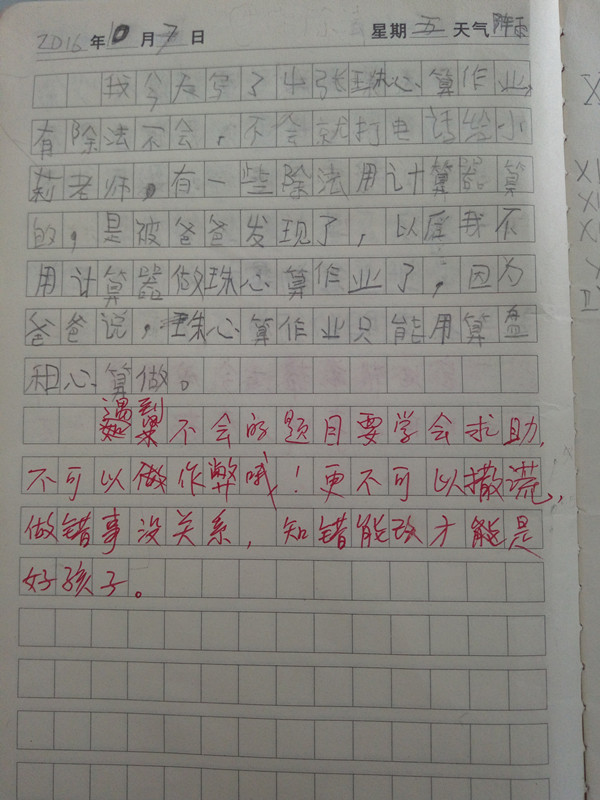 2016年10月7日 星期五天气阵雨
我今天写了4张珠心算作业,
有除法不会,不会就打电话给小
莉老师,有一些除法用计算器算
的,是被爸爸发现了,以后我不
用计算器做珠心算作业了,因为
爸爸说,珠心算作业只能用算盘
和心算做。
遇到不会的题目要学会求助,
不可以做作弊哦!更不可以撒谎,
做错事没关系,知错能改才能是
好孩子。